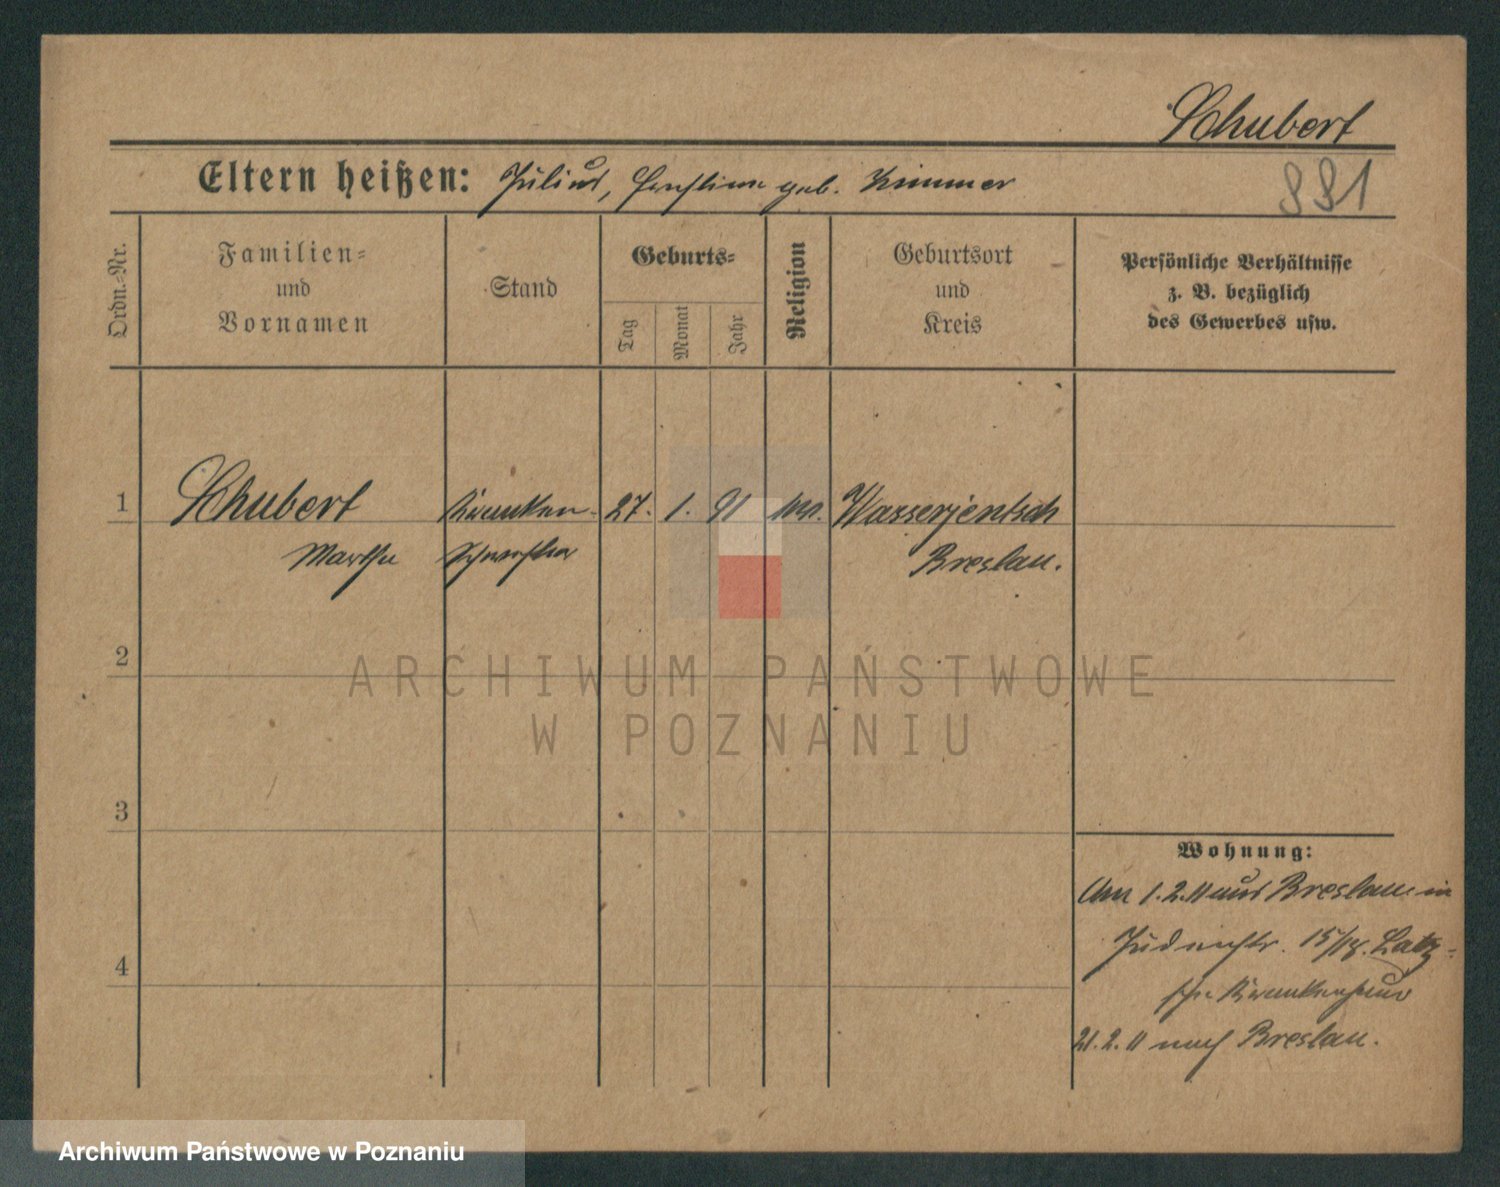 Schubert
Eltern heißen: Julius, geb. Kimmer
881
Ordn.-Nr.
Familien-
und
Vornamen
Stand
Geburts-
Tag
Monat
Jahr
Religion
Geburtsort
und
Kreis
Persönliche Verhältnisse
z. B. bezüglich
des Gewerbes usw.
1 Schubert Kranken- 27. 1. 91 Wasserjentsch
Martha Schwester Breslau.
2
3
4
Wohnung:
Am 1.2.11 aus Breslau in
15/18.
sche Krankenhaus
21.2.11 nach Breslau.
ARCHIWUM PAŃSTWOWE
W POZNANIU
Archiwum Państwowe w Poznaniu